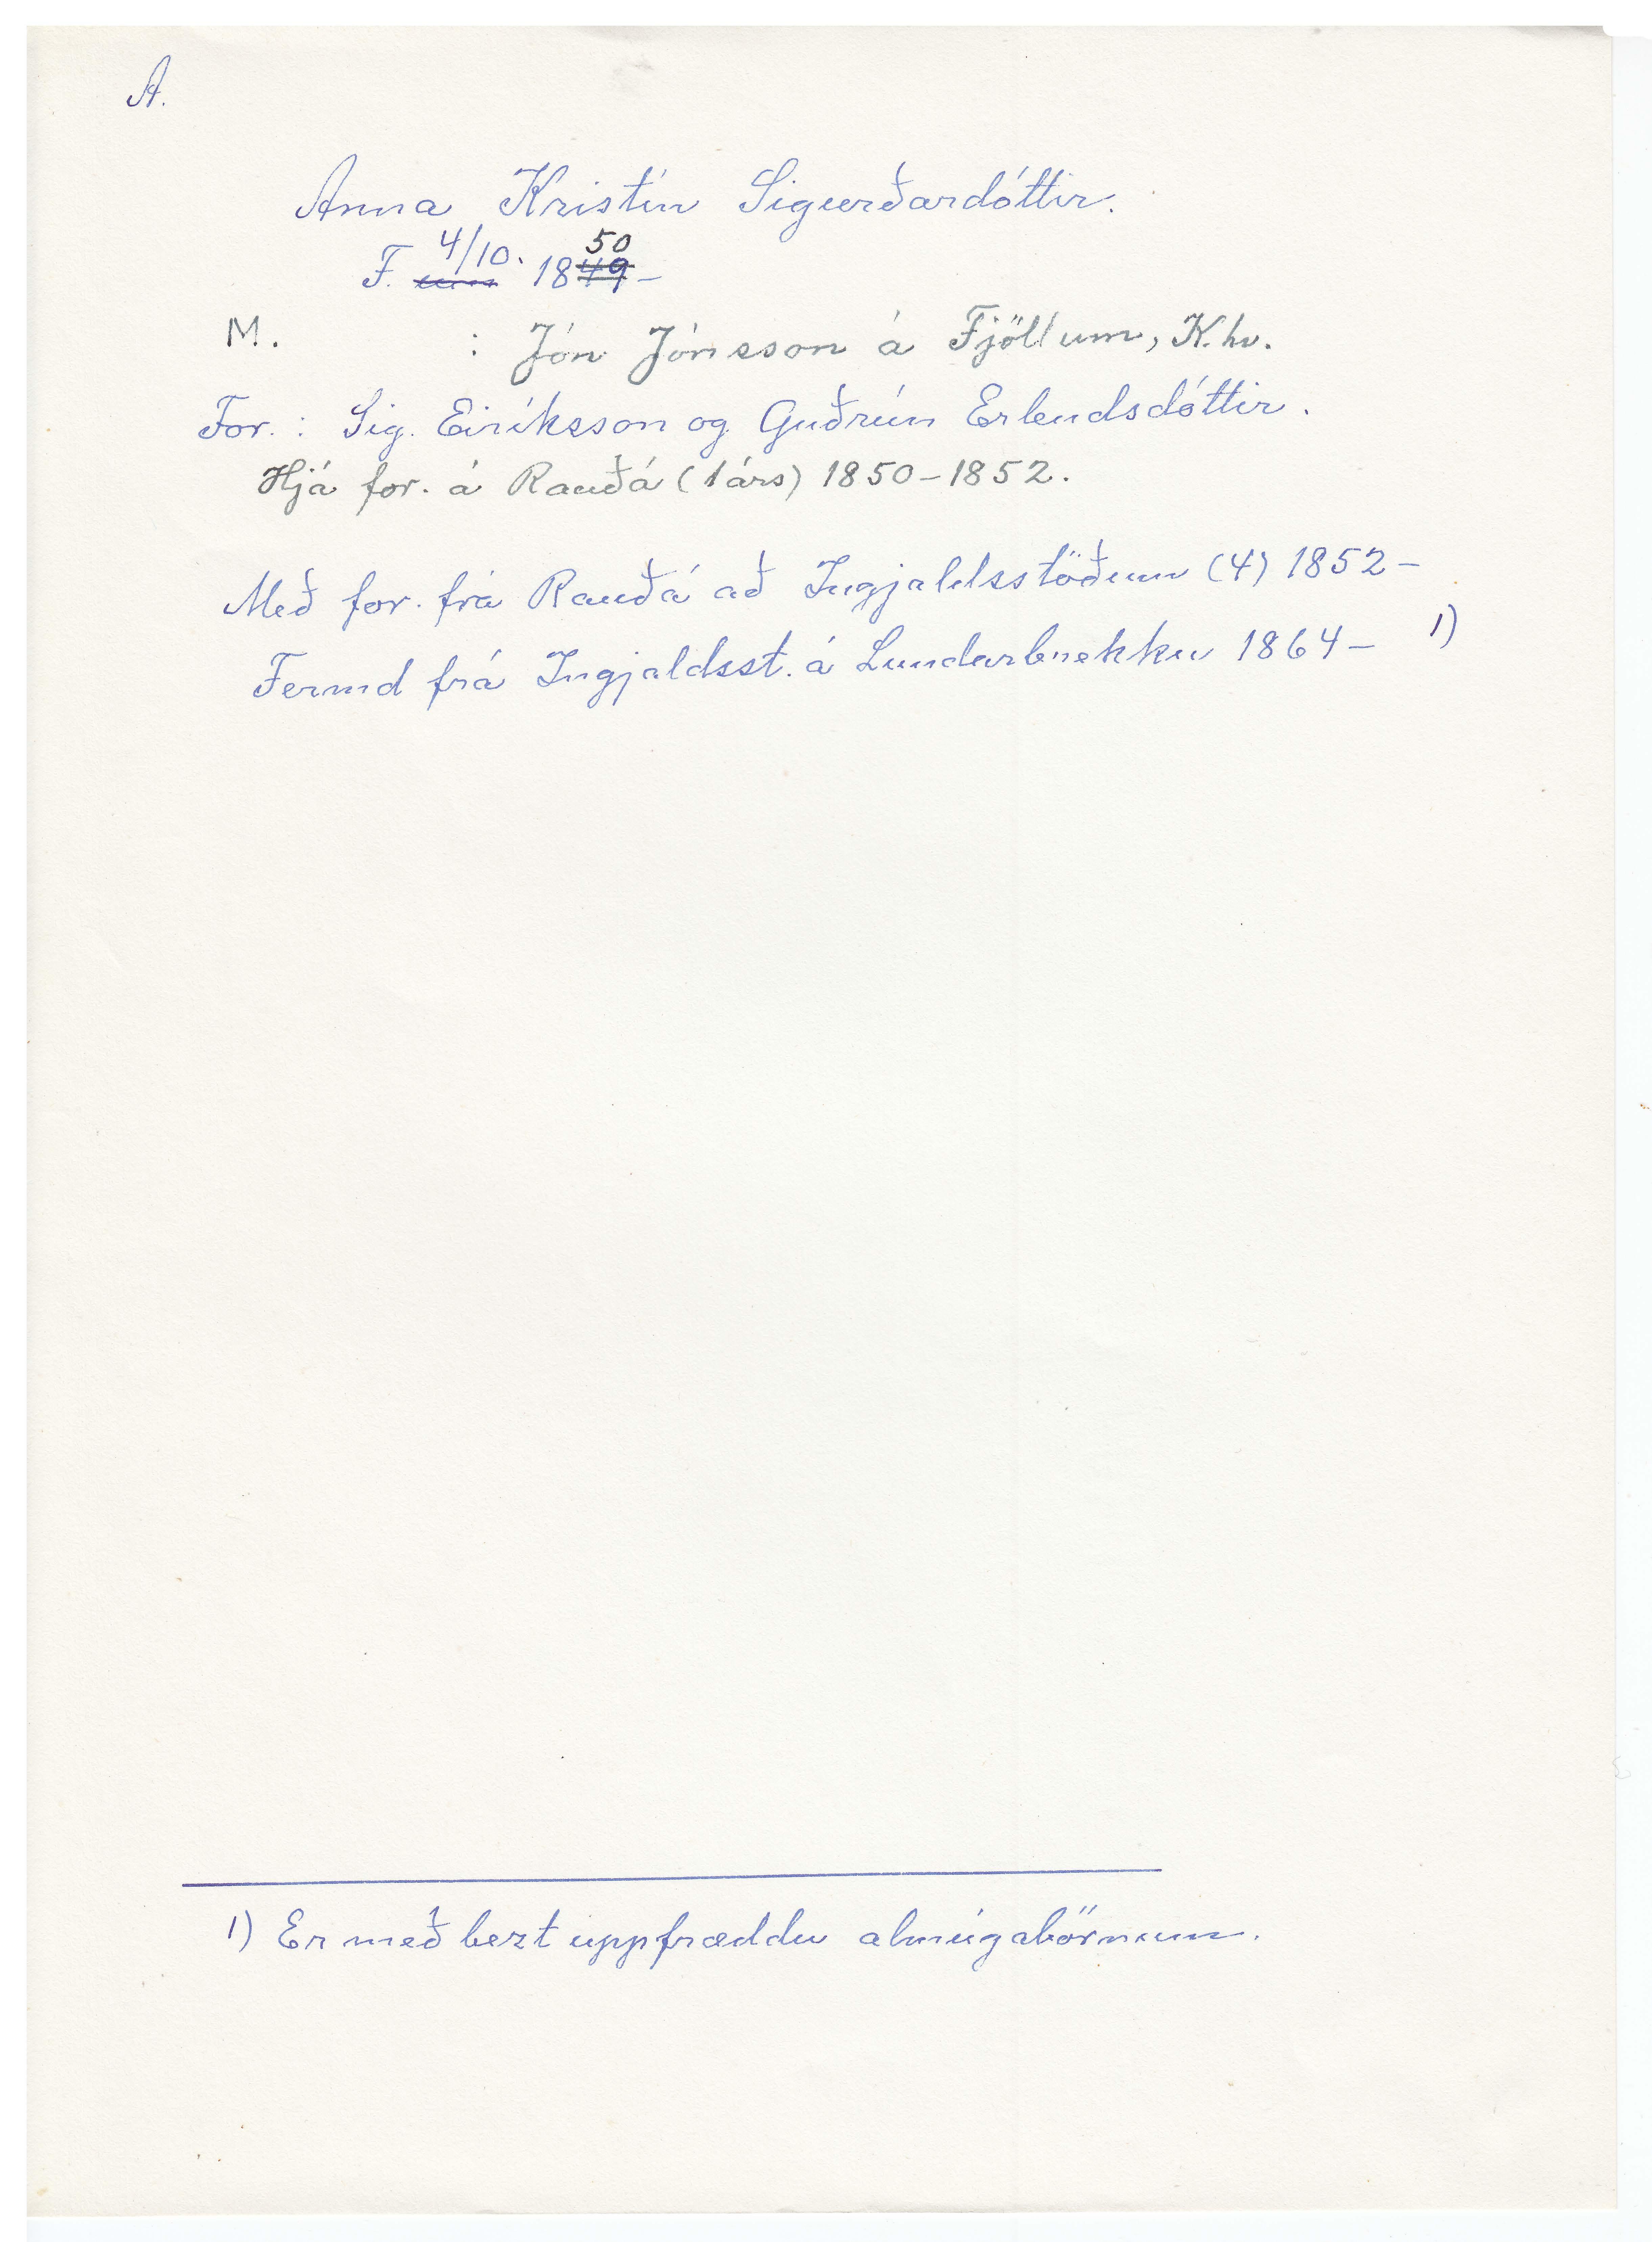 A.
Anna Kristín Sigurðardóttir.
50
F. 4/10. um 1849 –
M. : Jón Jónsson á Fjöllum, K.hv.
For.: Sig. Eiríksson og Guðrún Erlendsdóttir.
Hjá for. á Rauðá (1 árs) 1850–1852.
Með for. frá Rauðá að Ingjaldsstöðum (4) 1852–
Fermd frá Ingjaldsst. á Lundarbrekku 1864– 1)
1) Er með bezt uppfræddu almúgabörnum.